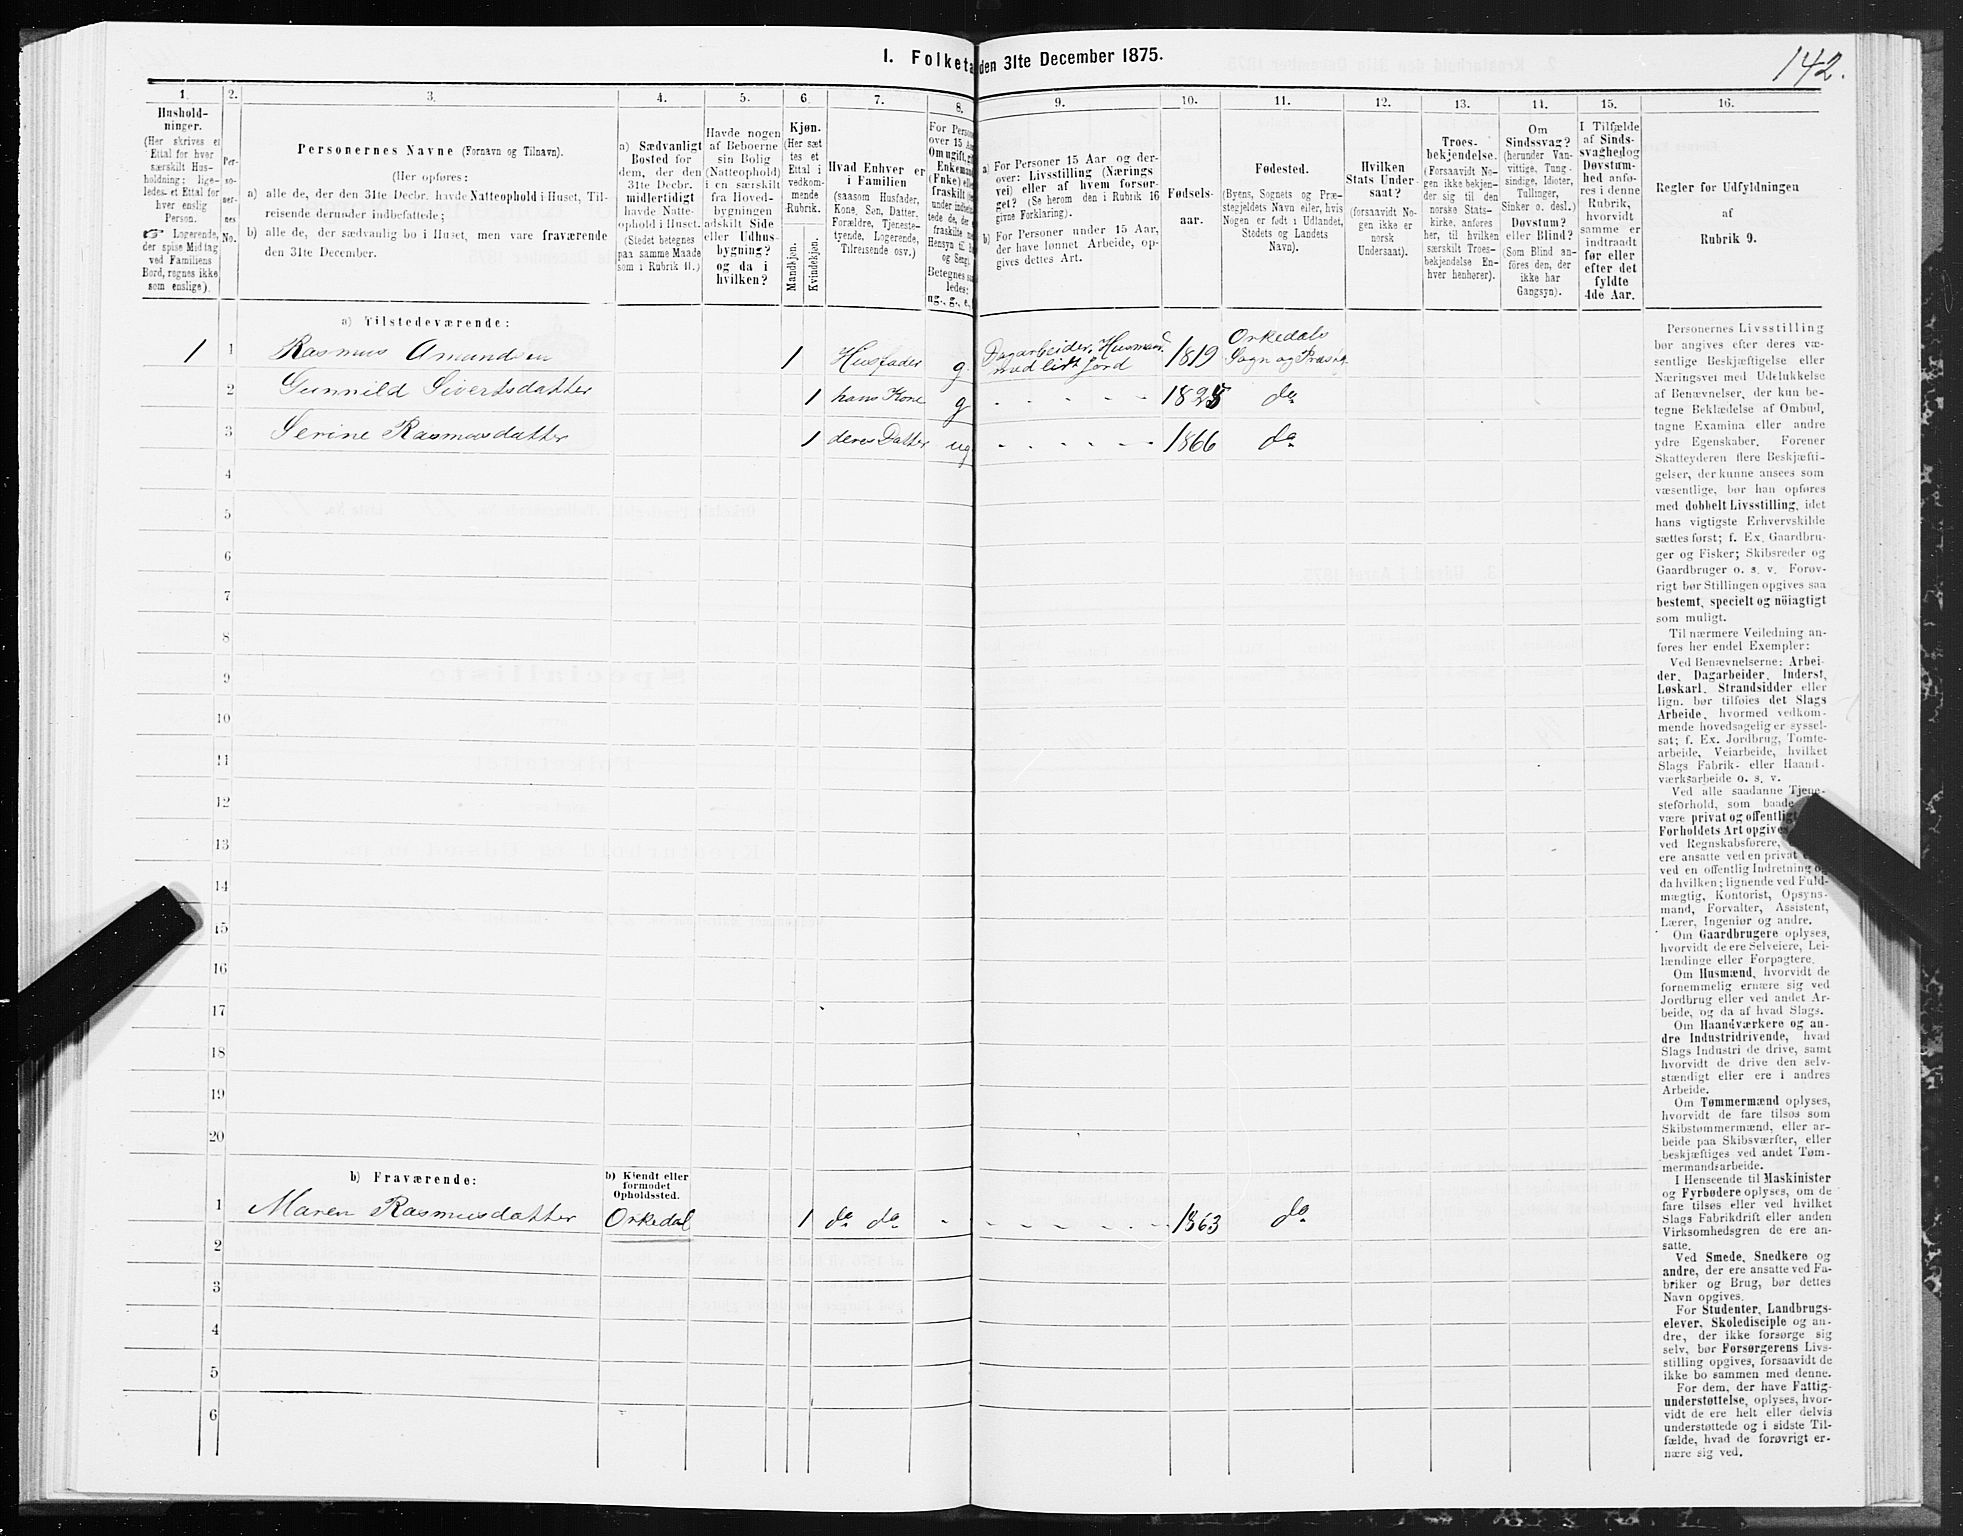 1. Folketa den 31te December 1875.
142.
1.
2.
3.
4.
5.
6.
7.
8.
9.
10.
11.
12.
13.
14.
15.
16.
Hushold-
ninger.
(Her skrives et
Ettal for hver
særskilt Hus-
holdning; lige-
ledes et Ettal for
hver enslig
Person.
☞ Logerende,
der spise Middag
ved Familiens
Bord, regnes ikke
som enslige).
Per-
so-
ner-
nes
No.
Personernes Navne (Fornavn og Tilnavn).
(Her opføres:
a) alle de, der den 31te Decbr. havde Natteophold i Huset, Til-
reisende derunder indbefattede;
b) alle de, der sædvanlig bo i Huset, men vare fraværende
den 31te December.
a) Sædvanligt
Bosted for
dem, der den
31te Decbr.
midlertidigt
havde Natte-
ophold i Huset.
(Stedet betegnes
paa samme Maade
som i Rubrik 11.)
Havde nogen
af Beboerne
sin Bolig
(Natteophold)
i en særskilt
fra Hoved-
bygningen
adskilt Side
eller Udhus-
bygning?
og da i
hvilken?
Kjøn.
(Her sæt
tes et
Ettal i
vedkom-
mende
Rubrik.
Mandkjøn.
Kvindekjøn.
Hvad Enhver er
i Familien
(saasom Husfader,
Kone, Søn, Datter.
Forældre, Tjeneste-
tyende, Logerende,
Tilreisende osv.)
For Perso
over 15 A
Om ugift, gi
Enkeman
(Enke) elle
fraskilt
under indbe
tede de, der
fraskilte
Hensyn til B
og Seng).
Betegnes sa
ledes:
ug., g., e.,
a) For Personer 15 Aar og der-
over: Livsstilling (Nærings
vei) eller af hvem forsør-
get? (Se herom den i Rubrik 16
givne Forklaring).
b) For Personer under 15 Aar,
der have lønnet Arbeide, op-
gives dettes Art.
Fødsels-
aar.
Fødested.
(Byens, Sognets og Præ-
stegjeldets Navn eller, hvis
Nogen er født i Udlandet,
Stedets og Landets
Navn).
Hvilken
Stats Under-
saat?
(forsaavidt No-
gen ikke er
norsk
Undersaat).
Troes-
bekjendelse.
(Forsaavidt No-
gen ikke bekjen-
der sig til den
norske Stats-
kirke, anføres
her, til hvilken
særskilt Troes-
bekjendelse En-
hver henhører).
Om
Sindssvag?
(herunder Van-
vittige, Tung-
sindige, Idioter,
Tullinger,
Sinker o. desl.)
Døvstum?
eller Blind?
(Som Blind an-
føres den, der
ikke har
Gangsyn).
I Tilfælde
af Sinds-
svaghed og
Døvstum-
hed anfø-
res i denne
Rubrik,
hvorvidt
samme er
indtraadt
før eller
efter det
fyldte
4de Aar.
Regler for Udfyldningen
af
Rubrik 9.
a) Tilstedeværende:
1 1 Rasmus Amundsen 1 Husfader g. Dagarbeider, Husmand
med lidt Jord 1819 Orkedals
Sogn og Præstg
2 Gunnild Sivertsdatter 1 hans Kone g - - - - - 1825 do
3 Serine Rasmusdatter 1 deres Datter ug - - - - - 1866 do
4
5
6
7
8
9
10
11
12
13
14
15
16
17
18
19
20
b) Fraværende:
b) Kjendt eller
formodet
Opholdssted.
1 Maren Rasmusdatter Orkedal 1 do do - - - - - - 1863 do
2
3
4
5
6
Personernes Livsstilling
bør angives efter deres væ-
sentlige Beskjæftigelse eller
Næringsvei med Udelukkelse
af Benævnelser, der kun be-
tegne Beklædelse af Ombud,
tagne Examina eller andre
ydre Egenskaber. Forener
Skatteyderen flere Beskjæfti-
gelser, der kunne ansees som
væsentlige, bør han opføres
med dobbelt Livsstilling, idet
hans vigtigste Erhvervskilde
sættes først; f. Ex. Gaardbru-
ger og Fisker; Skibsreder og
Gaardbruger o. s. v. Forøv-
rigt bør Stillingen opgives saa
bestemt, specielt og nöiagtigt
som muligt.
Til nærmere Veiledning an-
føres her endel Exempler:
Ved Benævnelserne: Arbei-
der, Dagarbeider, Inderst,
Løskarl, Strandsidder eller
lign. bør tilføies det Slags
Arbeide, hvormed vedkom-
mende hovedsagelig er syssel-
sat; f. Ex. Jordbrug, Tomte-
arbeide, Veiarbeide, hvilket
Slags Fabrik- eller Haand-
værksarbeide o. s. v.
Ved alle saadanne Tjene-
steforhold, som baade
være privat og offentligt
Forholdets Art opgives
ved Regnskabsførere,
ere ansatte ved en privat
ved en offentlig Indretning og
da hvilken; lignende ved Fuld-
mægtig, Kontorist, Opsyns-
mand, Forvalter, Assistent,
Lærer, Ingeniør og andre.
Om Gaardbrugere oplyses,
hvorvidt de ere Selveiere, Lei-
lændinge eller Forpagtere.
Om Husmænd, hvorvidt de
fornemmelig ernære sig ved
Jordbrug eller ved andet Ar-
beide, og da af hvad Slags.
Om Haandværkere og an-
dre Industridrivende, hvad
Slags Industri de drive, samt
hvorvidt de drive den selv-
stændigt eller ere i andres
Arbeide.
Om Tømmermænd oplyses,
hvorvidt de fare tilsøs som
Skibstømmermænd, eller ar-
beide paa Skibsværfter, eller
beskjæftiges ved andet Tøm-
mermandsarbeide.
I Henseende til Maskinister
og Fyrbødere oplyses, om de
fare tilsøs eller ved hvilket
Slags Fabrikdrift eller anden
Virksomhedsgren de ere an-
satte.
Ved Smede, Snedkere og
andre, der ere ansatte ved Fa-
briker og Brug, bør dettes
Navn opgives.
For Studenter, Landbrugs-
elever, Skoledisciple og an-
dre, der ikke forsørge sig
selv, bør Forsørgerens Livs-
stilling opgives, forsaavidt de
ikke bo sammen med denne.
For dem, der have Fattig-
understøttelse, oplyses, hvor-
vidt de ere helt eller delvis
understøttede og i sidste Til-
fælde, hvad de forøvrigt er-
nære sig ved.